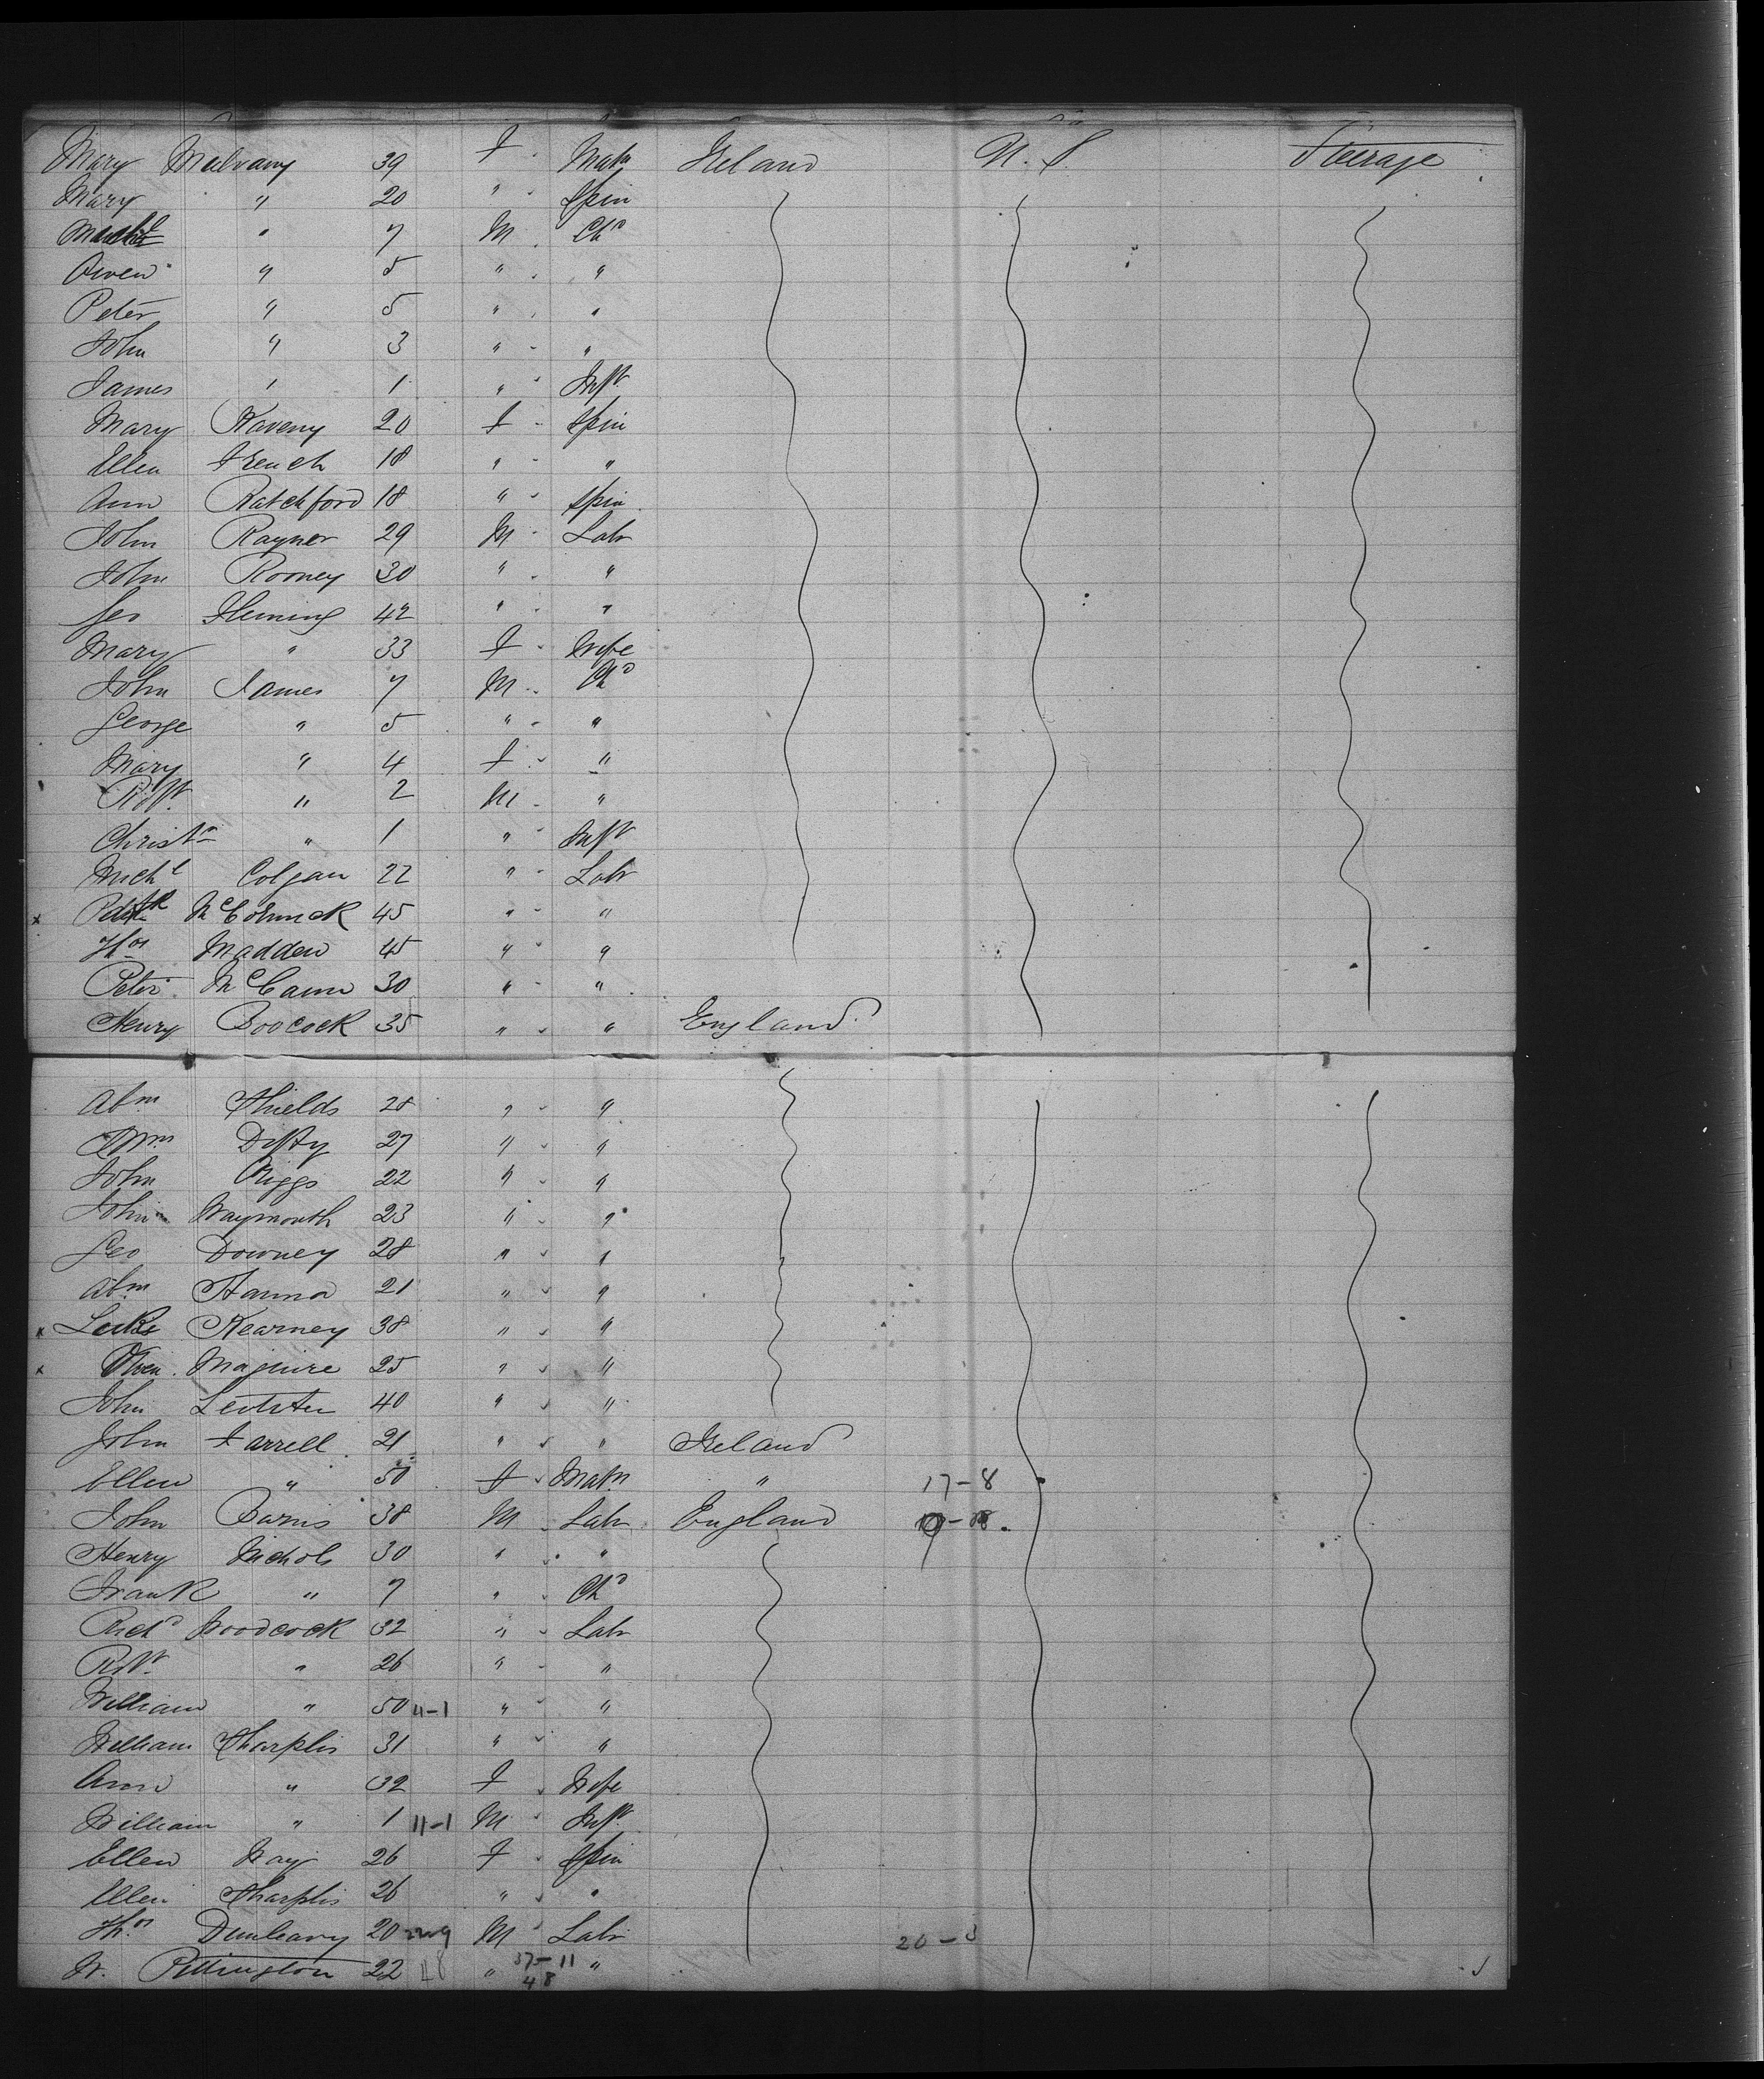 Mary Mulvany 39 F Matn Ireland U. S Steerage
Mary " 20 " Spin
" 7 M Chd
Owen " 5 " "
Peter " 5 " "
John " 3 " "
James " 1 " Inft
Mary Kaveny 20 F Spin
Ellen French 18 " "
Ann Ratchford 18 " Spin
John Rayner 29 M Labr
John Rooney 30 " "
Geo Fleming 42 " "
Mary " 33 F Wife
John James 7 M Chd
George " 5 " "
Mary " 4 F "
Robt " 2 M "
Christr " 1 " Inft
Michl Colgan 22 " Labr
x McCormick 45 " "
Thos Madden 45 " "
Peter McCann 30 " "
Henry Boocock 35 " " England
Abm Shields 28 " "
Wm Defty 27 " "
John Riggs 22 " "
John Waymouth 23 " "
Geo Downey 28 " "
Abm Hanna 21 " "
x Luke Kearney 38 " "
x Owen Maguire 25 " "
John 40 " "
John Farrell 21 " " Ireland
Ellen " 50 F Matn " 17-8
John Burns 38 M Labr England
Henry Nichols 30 " "
Frank " 7 " Chd
Richd Woodcock 32 " Labr
Robt " 26 " "
William " 50 11-1 " "
William Sharplis 31 " "
Ann " 32 F Wife
William " 1 11-1 M Inft
Ellen Way 26 F Spin
Ellen Sharplis 26 " "
Thos Dunleavy 20 M Labr 20-3
W. Pittington 22 48 " 37-11 "
48